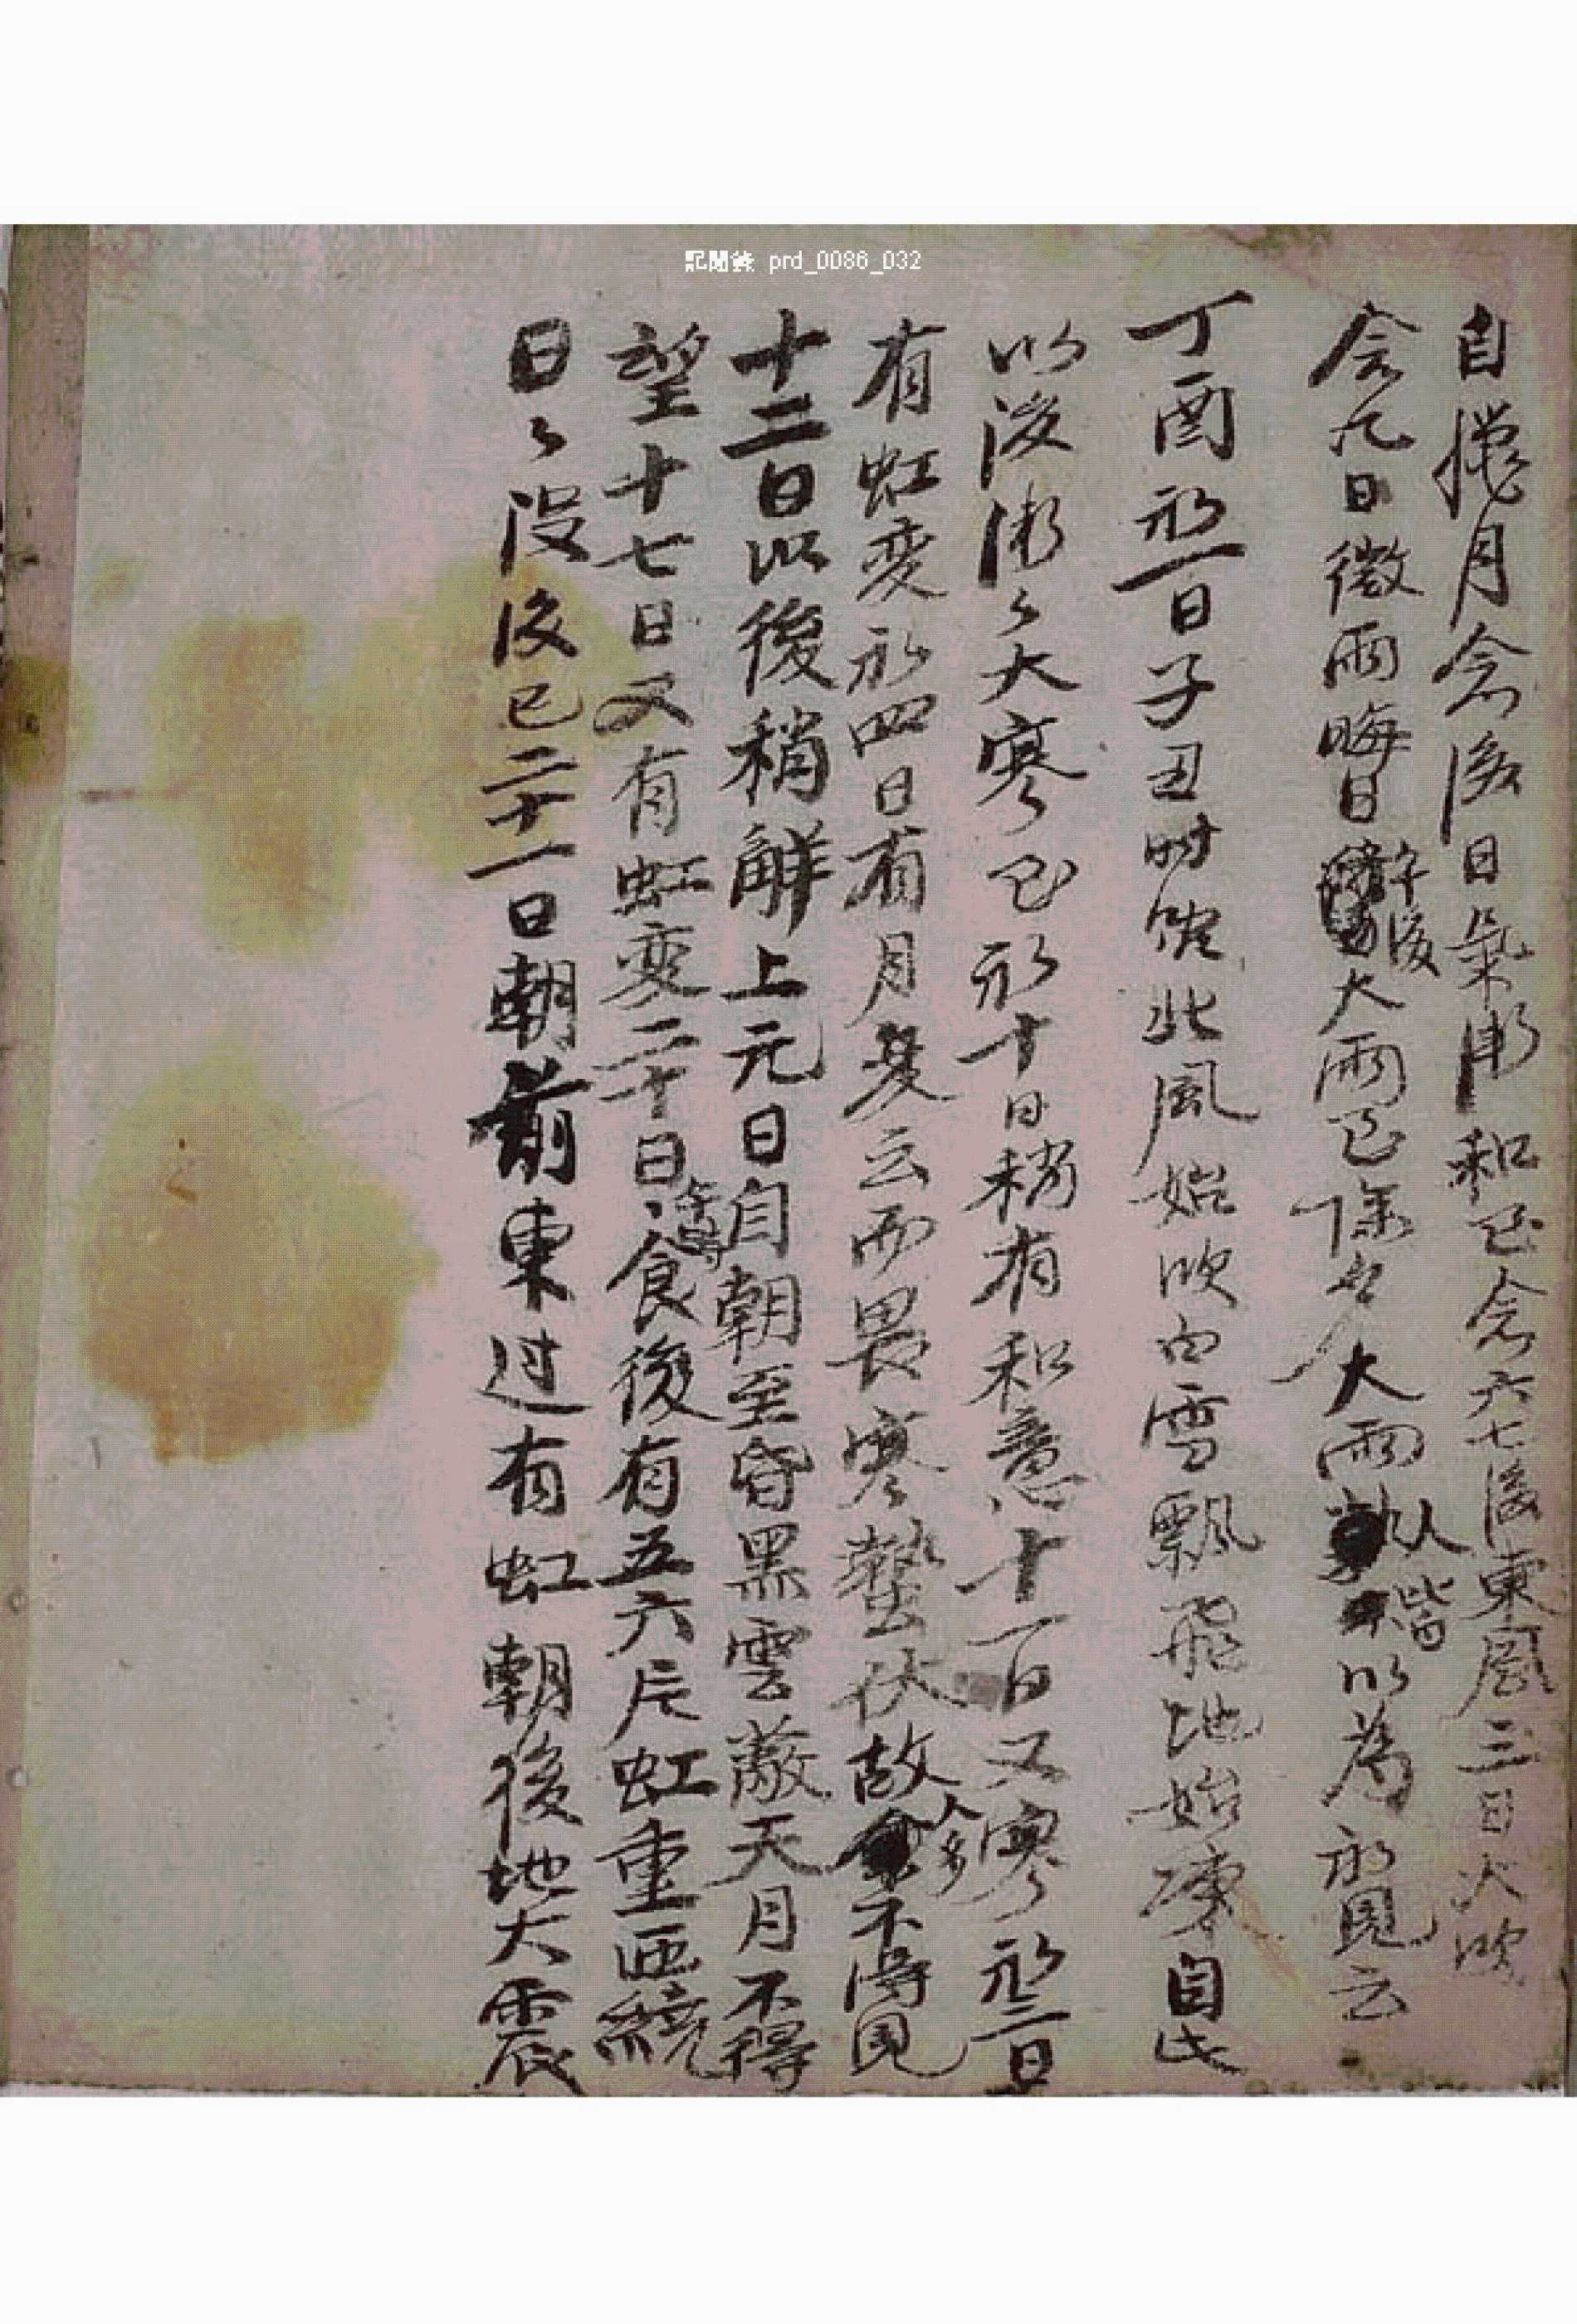 記聞錄 prd_0086_032
自臘月念後日氣漸和已念六七後東風三日大吹
念九日微雨晦日午後大雨已除夕大雨人皆以為初見云
丁酉初一日子丑時俄北風始吹白雪飄飛地始凍自此
以後漸々大寒已初十日稍有和意十一日又寒初二日
有虹变初四日有月变云而畏寒蟄伏故人多不得見
十二日以後稍解上元日自朝至昏黑雲蔽天月不得
望十七日又有虹变二十日食後有五六尺虹重匝繞
日々没後已二十一日朝前東过有虹朝後地大震